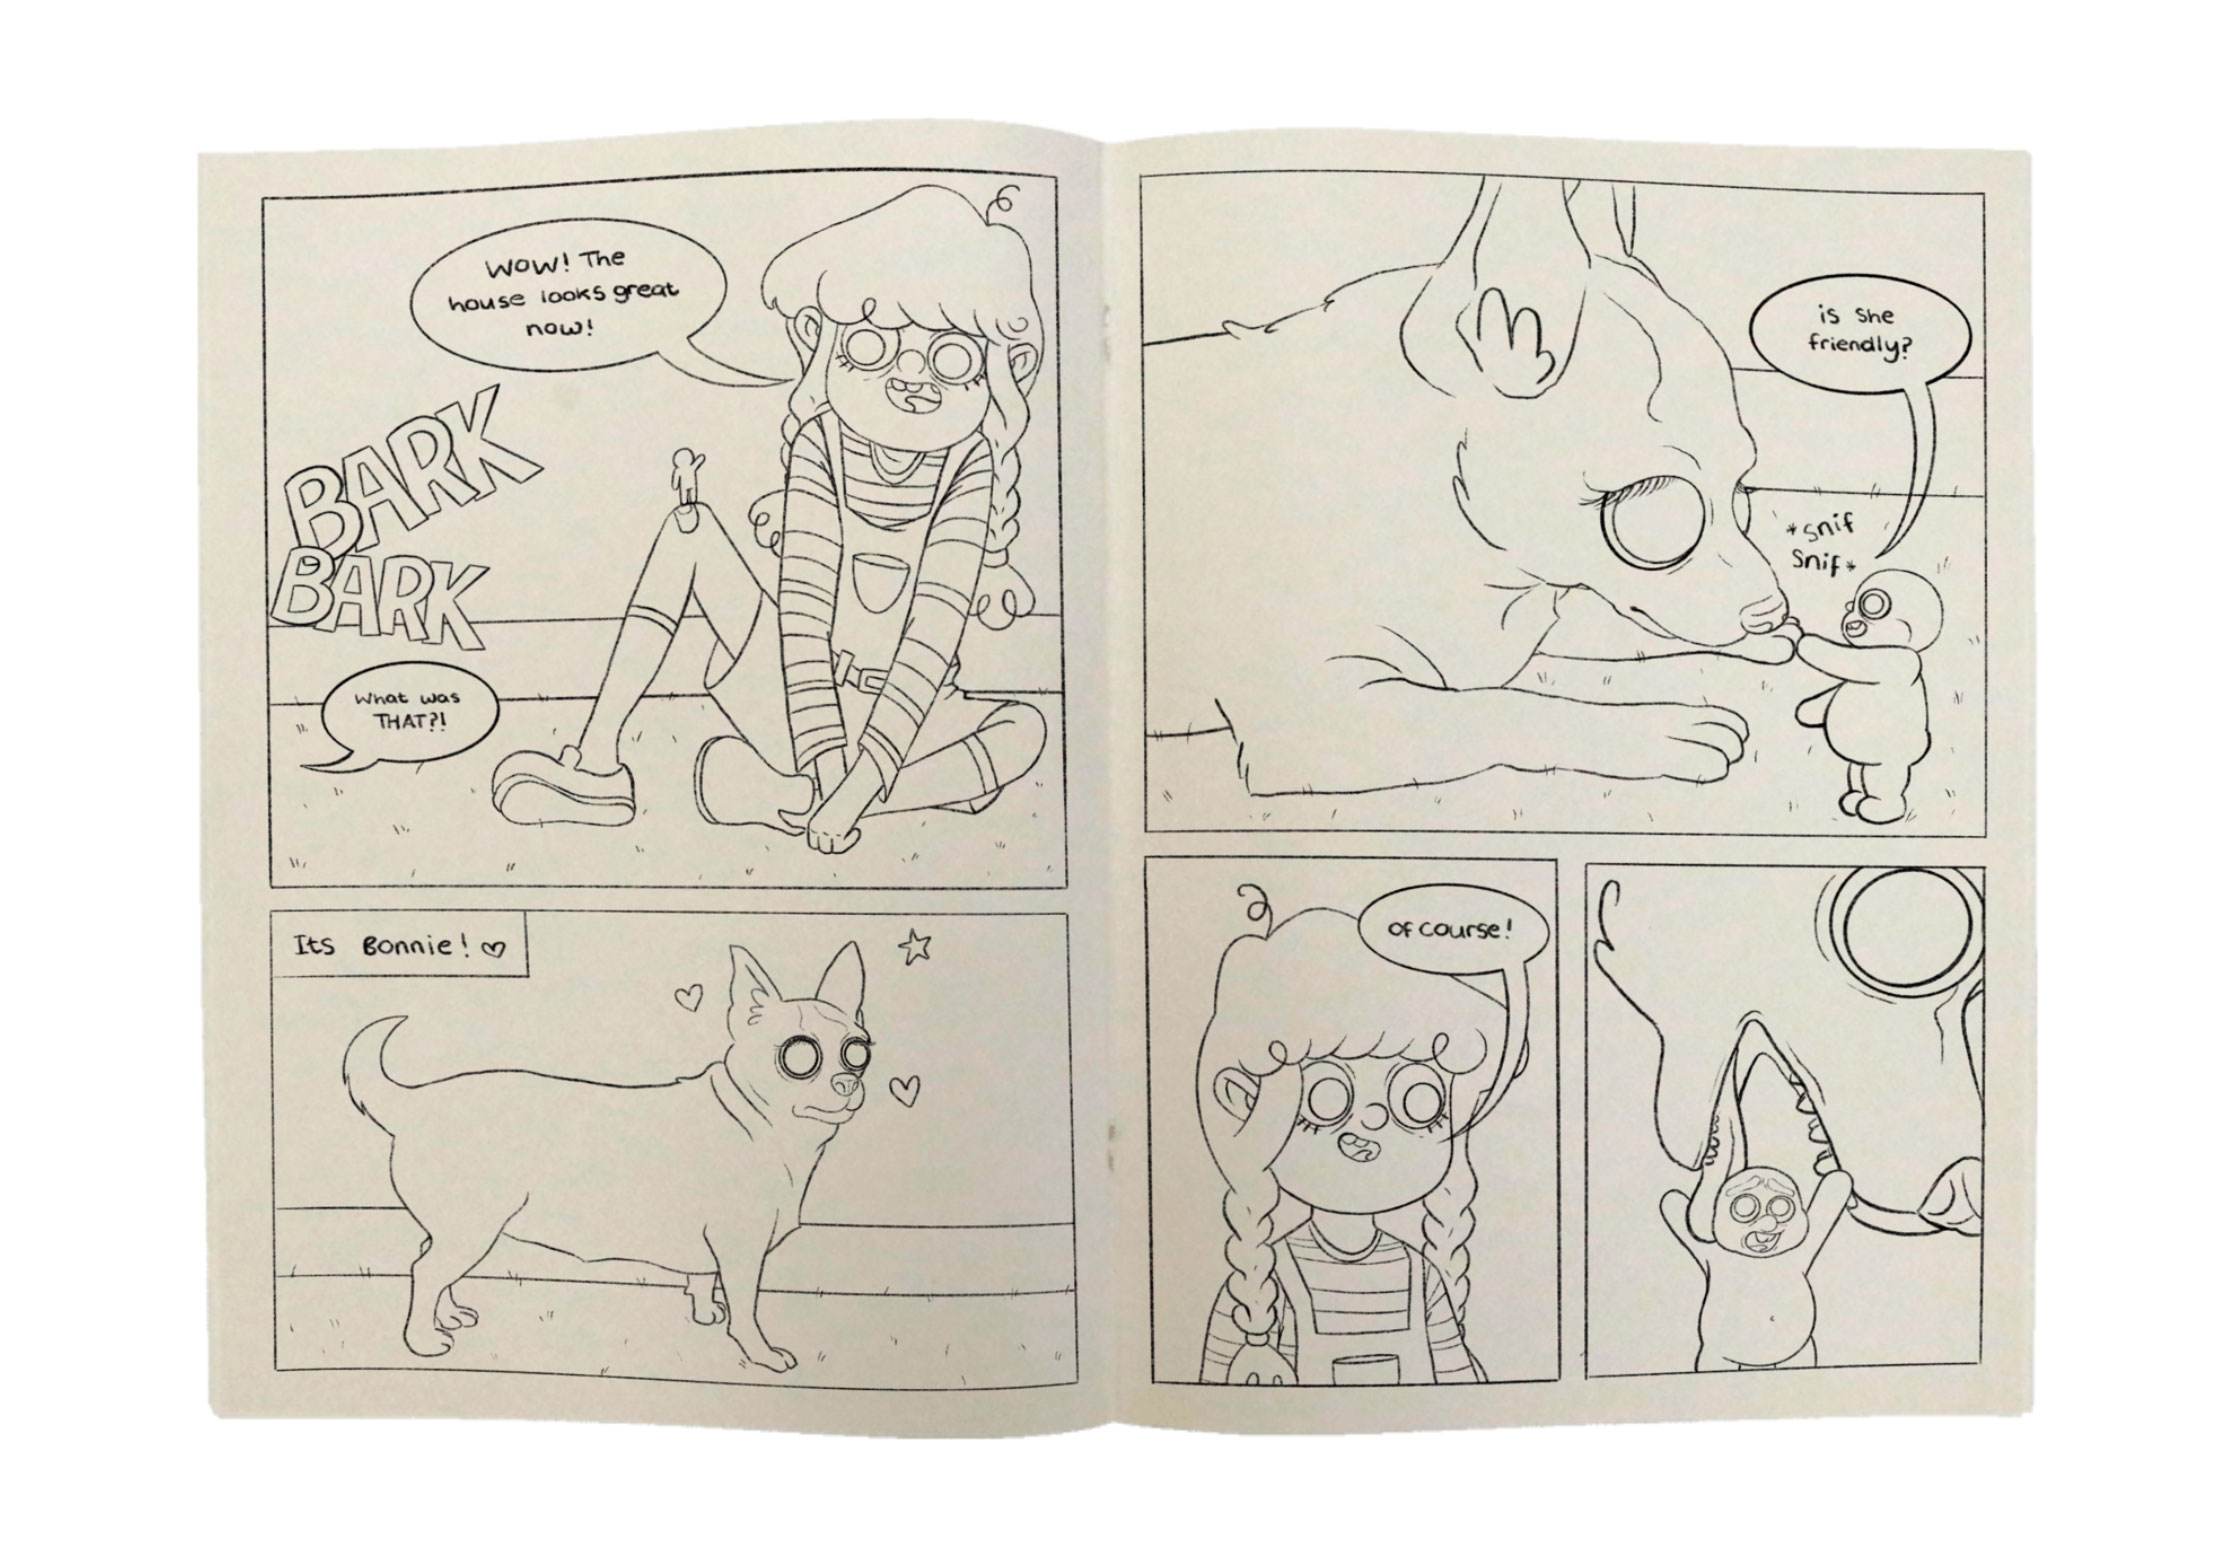 WOW! The
house looks great
now!
BARK
BARK
What was
THAT?!
Its Bonnie! ♡
is she
friendly?
*snif
Snif*
of course!